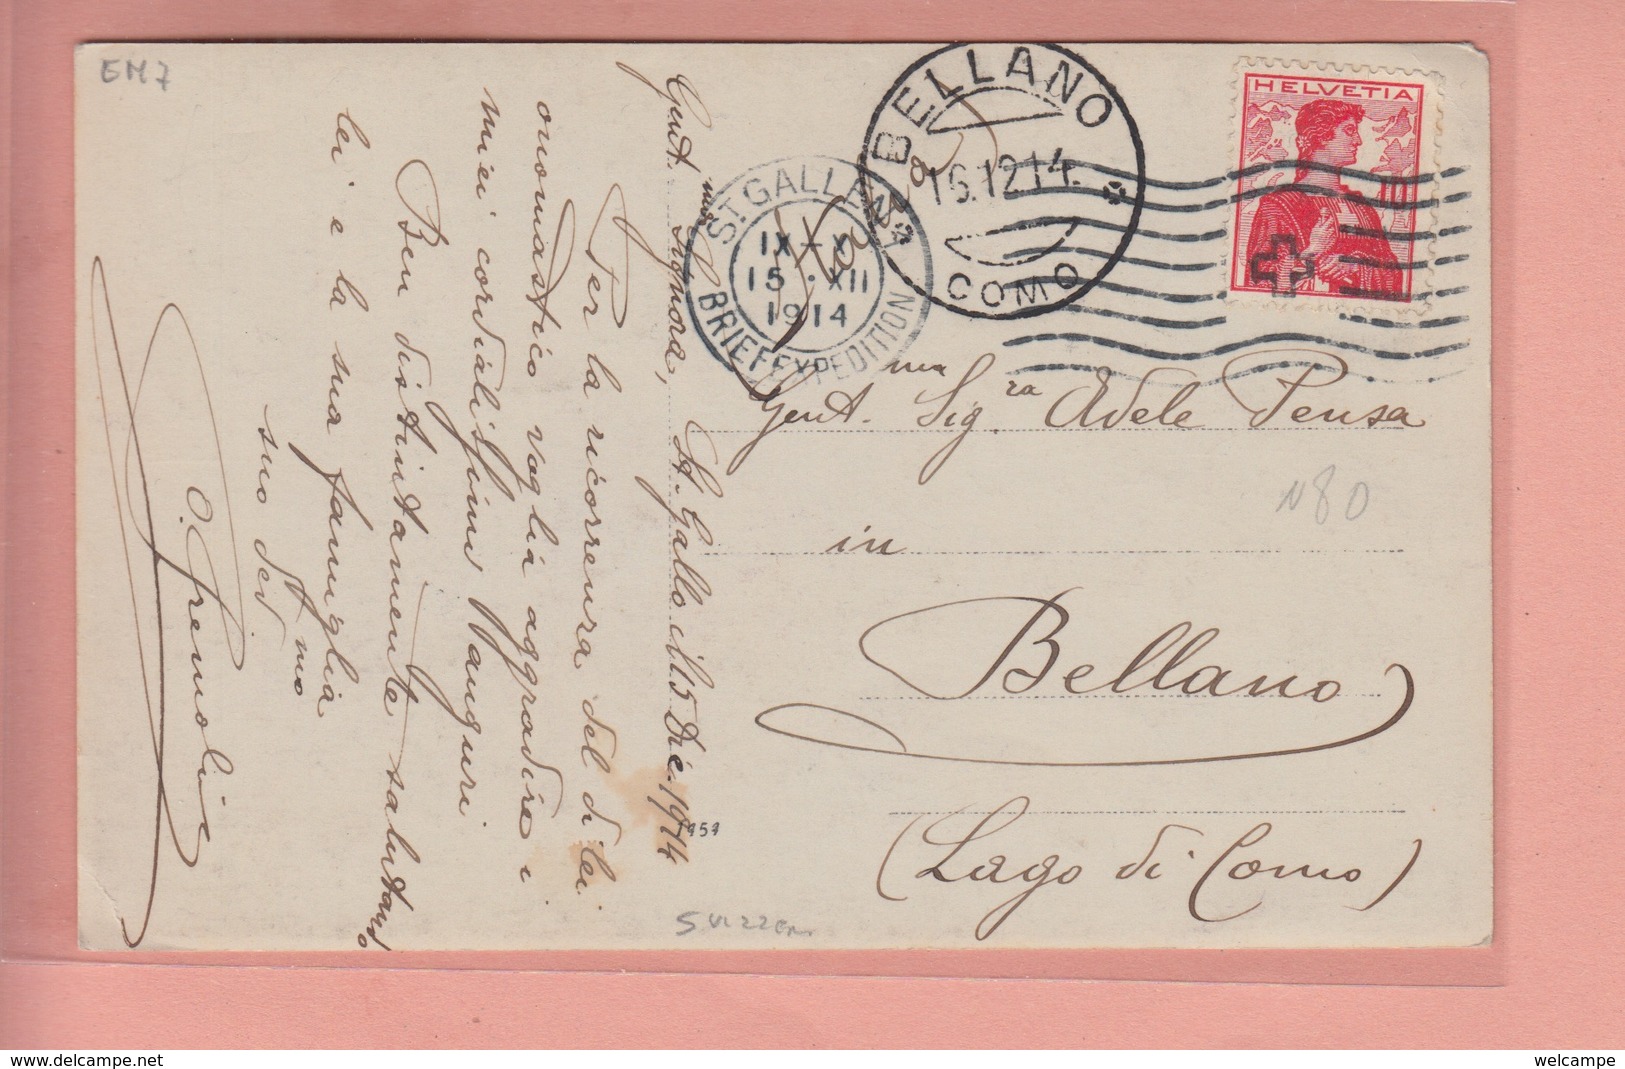 EM7
HELVETIA
10
BELLANO
16.12.14.
COMO
ST. GALLEN
IX–X
15·XII
1914
BRIEFEXPEDITION
Gent.ma Sig.ra Adele Pensa
in
Bellano
(Lago di Como)
N80
St. Gallo il 15 Dic. 1914
Gent.ma Signora,
Per la ricorrenza del di lei
onomastico voglia aggradire i
miei cordialissimi auguri
Ben distintamente salutando
lei e la sua famiglia
suo dev.mo
1959
SVIZZERA
welcampe
delcampe.net